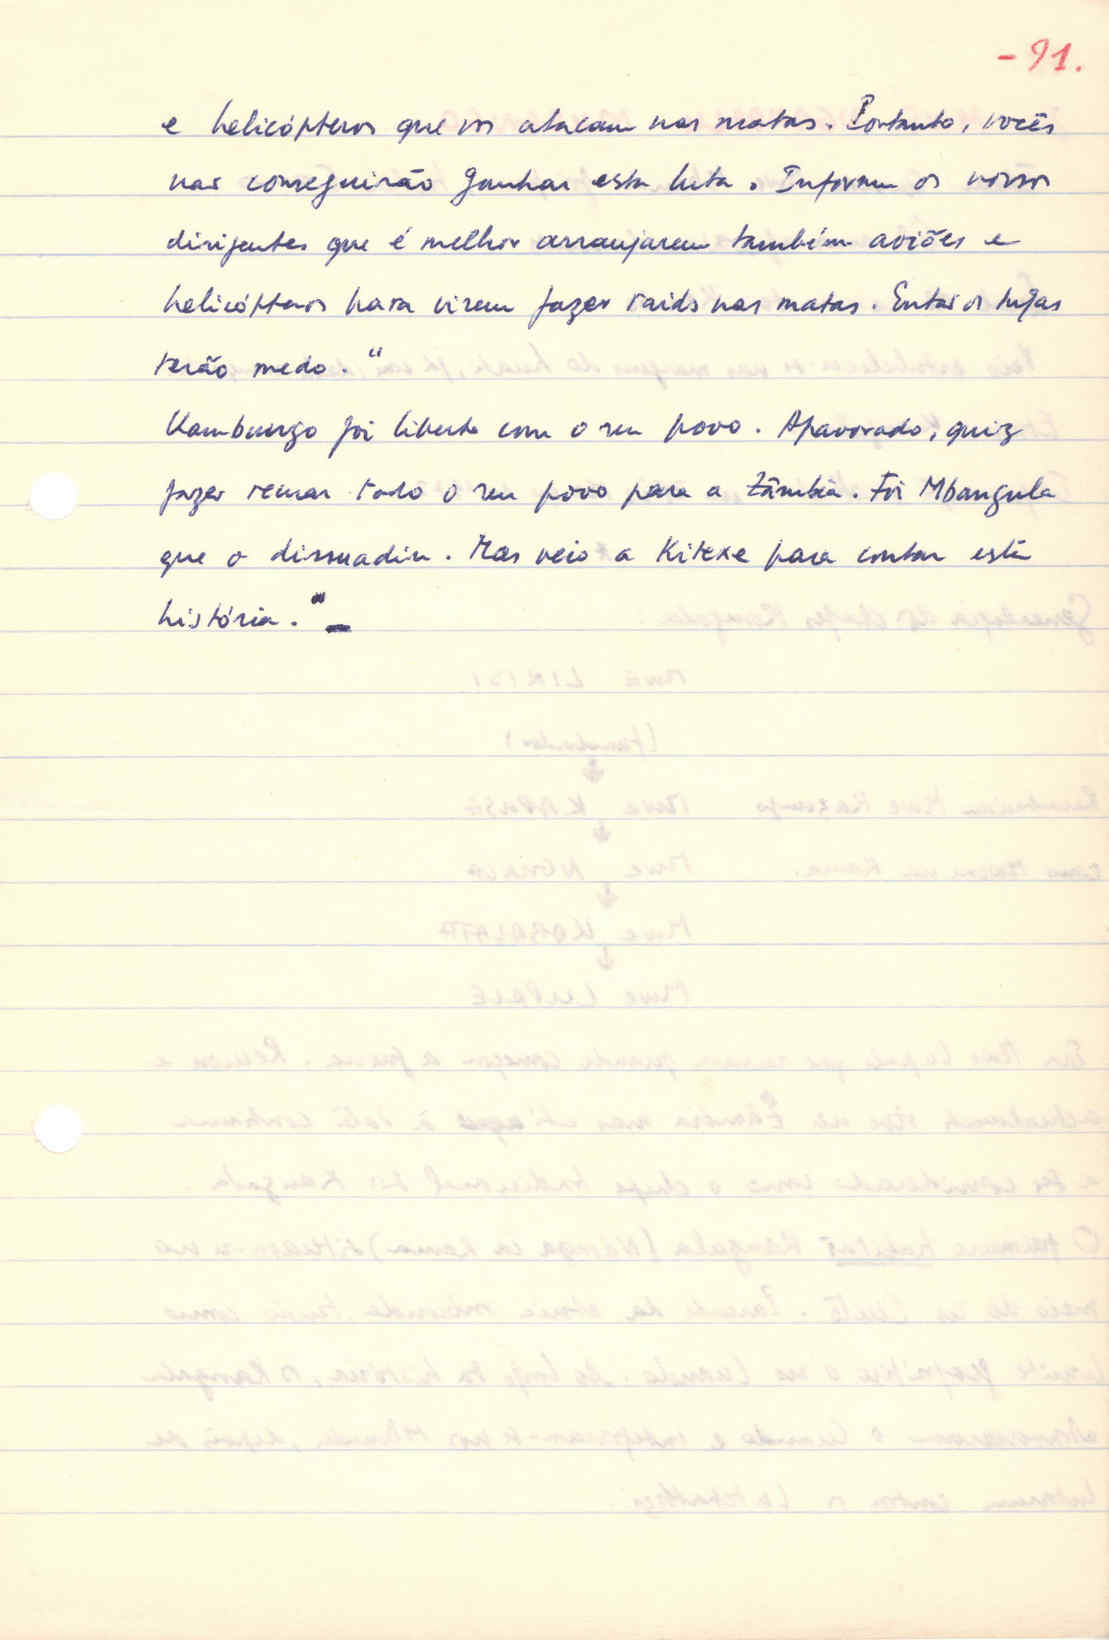 - 91.
e helicópteros que vos atacam nas matas. Portanto, vocês
nas conseguirão ganhar esta luta. Informem os vossos
dirigentes que é melhor arranjarem também aviões e
helicópteros para virem fazer raids nas matas. Entas os tugas
terão medo."
Kambungo foi liberto com o seu povo. Apavorado, quiz
fazer recuar todo o seu povo para a Zâmbia. Foi Mbangula
que o dissuadiu. Mas veio a Kitexe para contar esta
história."_